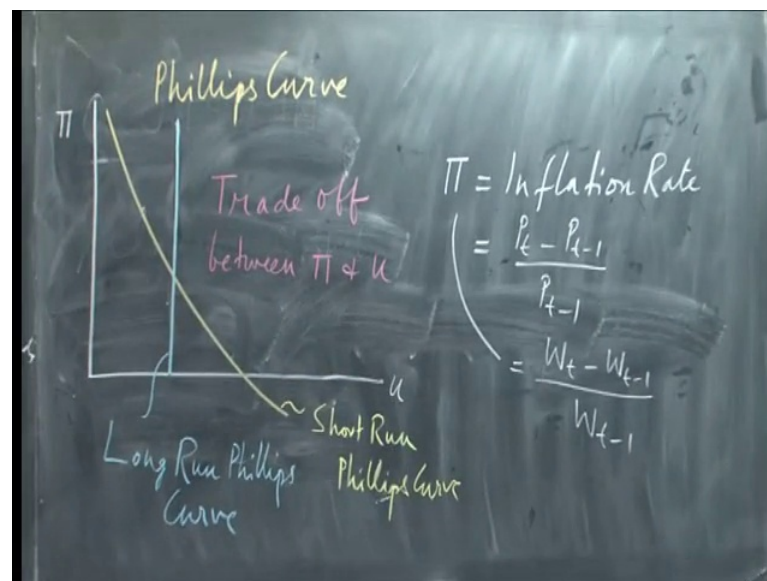 Phillips Curve
Π
Trade off
between Π & u
u
Long Run Phillips
Curve
~ Short Run
Phillips Curve
Π = Inflation Rate
= Pt - Pt-1
Pt-1
= Wt - Wt-1
Wt-1